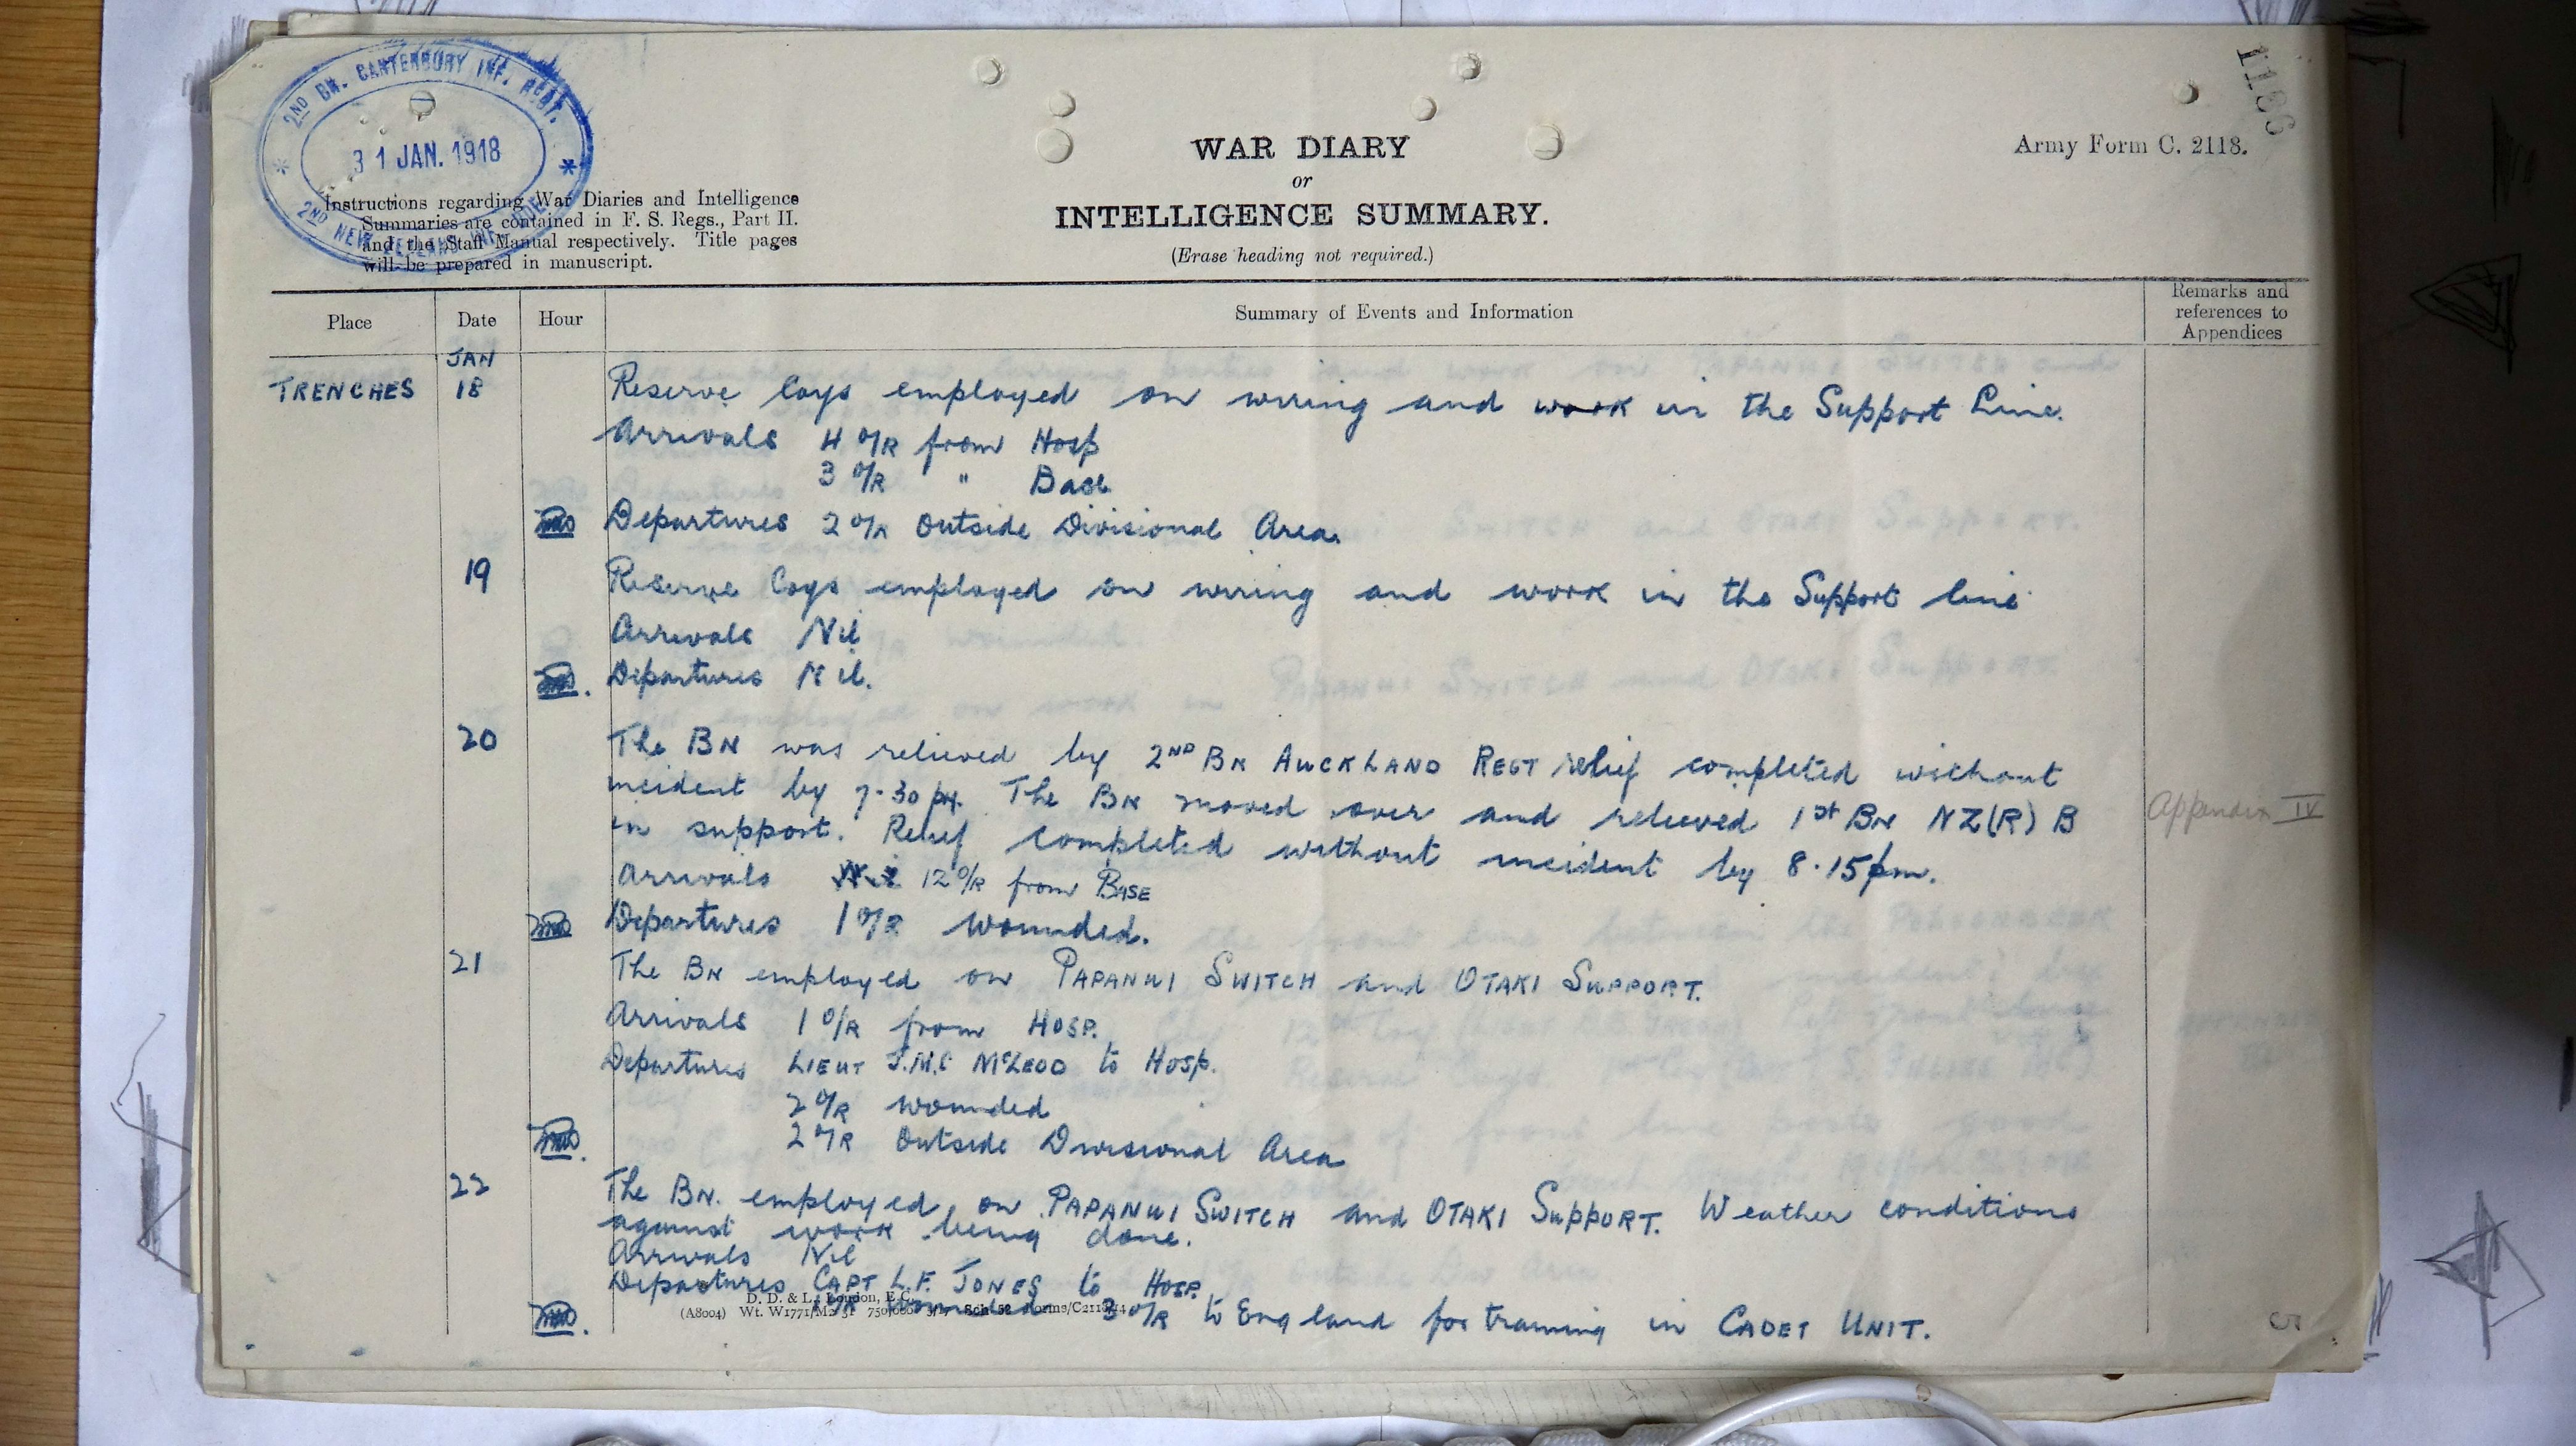 2ND BN. CANTERBURY INF. REGT.
31 JAN. 1918
2ND NEW ZEALAND INF. BDE.
1186
Army Form C. 2118.
WAR DIARY
or
INTELLIGENCE SUMMARY.
(Erase heading not required.)
Instructions regarding War Diaries and Intelligence
Summaries are contained in F. S. Regs., Part II.
and the Staff Manual respectively. Title pages
will be prepared in manuscript.
Place Date Hour Summary of Events and Information Remarks and references to Appendices
JAN
TRENCHES 18 Reserve Coys employed on wiring and work in the Support Line.
Arrivals 4 O/R from Hosp
3 O/R " Base
Departures 2 O/R Outside Divisional Area.
19 Reserve Coys employed on wiring and work in the Support line
Arrivals Nil
Departures Nil.
20 The BN was relieved by 2ND BN AUCKLAND REGT relief completed without
incident by 7.30 pm. The BN moved over and relieved 1st BN NZ(R) B Appendix IV
in support. Relief completed without incident by 8.15pm.
Arrivals 12 O/R from BASE
Departures 1 O/R wounded.
21 The BN employed on PAPANUI SWITCH and OTAKI SUPPORT.
Arrivals 1 O/R from HOSP.
Departures LIEUT J.M.C McLEOD to Hosp.
2 O/R wounded
2 O/R Outside Divisional Area
22 The BN. employed on PAPANUI SWITCH and OTAKI SUPPORT. Weather conditions
against work being done.
Arrivals Nil
Departures CAPT L.F. JONES to HOSP.
wounded 3 O/R to England for training in CADET UNIT.
D. D. & L., London, E.C.
(A8004) Wt. W1771/M2 31 Sch. 52 Forms/C2118/14
5